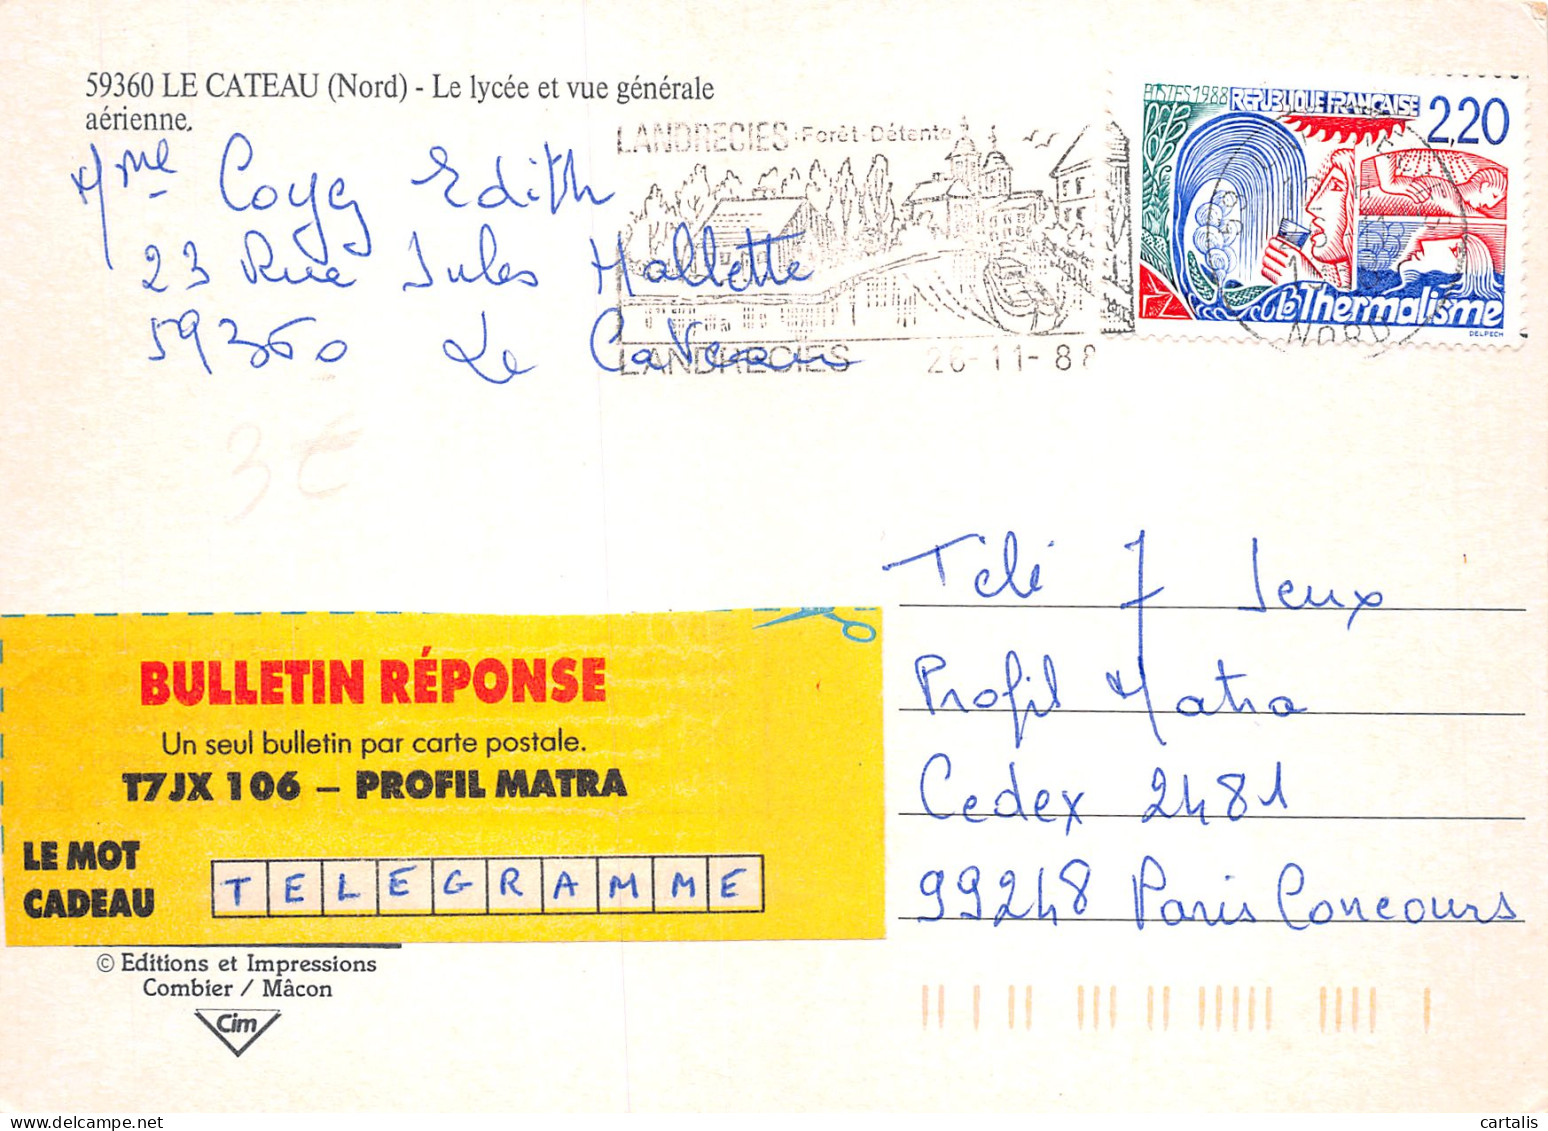 59360 LE CATEAU (Nord) - Le lycée et vue générale
aérienne.
Mme Edith
23 Rue Jules Mallette
59360 Le Cateau
LANDRECIES Forêt-Détente
LANDRECIES 26-11-88
POSTES 1988 REPUBLIQUE FRANÇAISE 2,20
Le Thermalisme
DELPECH
59
NORD
3€
Télé 7 Jeux
Profil Matra
Cedex 2481
99248 Paris Concours
BULLETIN RÉPONSE
Un seul bulletin par carte postale.
T7JX 106 – PROFIL MATRA
LE MOT
CADEAU
TELEGRAMME
© Editions et Impressions
Combier / Mâcon
Cim
cartalis
www.delcampe.net